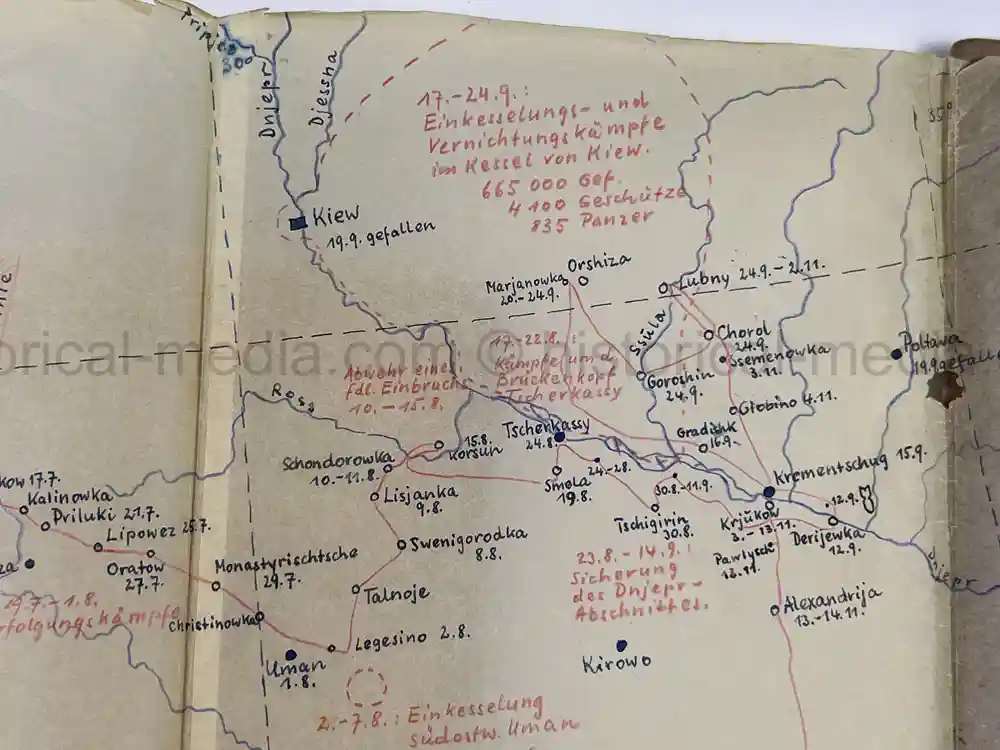 Tripjes
300
Dnjepr
Djessna
17.-24.9.:
Einkesselungs- und
Vernichtungskämpfe
im Kessel von Kiew.
665 000 Gef.
4 100 Geschütze
835 Panzer
35°
Kiew
19.9. gefallen
Orshiza
Marjanowka
20.-24.9.
Lubny 24.9.-2.11.
Ssula
Chorol
24.9.
Ssemenowka
3.11.
Poltawa
19.9 gefallen
historical-media.com © historical-media
17.-22.8.
Kämpfe um d.
Brückenkopf
Tscherkassy
Abwehr eines
fdl. Einbruchs
10.-15.8.
Goroshin
24.9.
Globino 4.11.
Ross
Tscherkassy
24.8.
Gradishk
16.9.
15.8.
Korsun
Schondorowka
10.-11.8.
Smela
19.8.
24.-28.
Krementschug 15.9.
30.8.-11.9.
12.9.
Lisjanka
9.8.
Tschigirin
30.8.
Krjukow
3.-13.11.
Derijewka
12.9.
Pawlysch
13.11.
Dnjepr
kow 17.7.
Kalinowka
Priluki 21.7.
Lipowez 25.7.
Oratow
27.7.
Swenigorodka
8.8.
Monastyrischtsche
29.7.
Talnoje
23.8.-14.9.:
Sicherung
des Dnjepr-
Abschnittes.
za
29.7.-1.8.
rfolgungskämpfe
Christinowka
Alexandrija
13.-14.11.
Legesino 2.8.
Uman
1.8.
Kirowo
2.-7.8.: Einkesselung
südostw. Uman